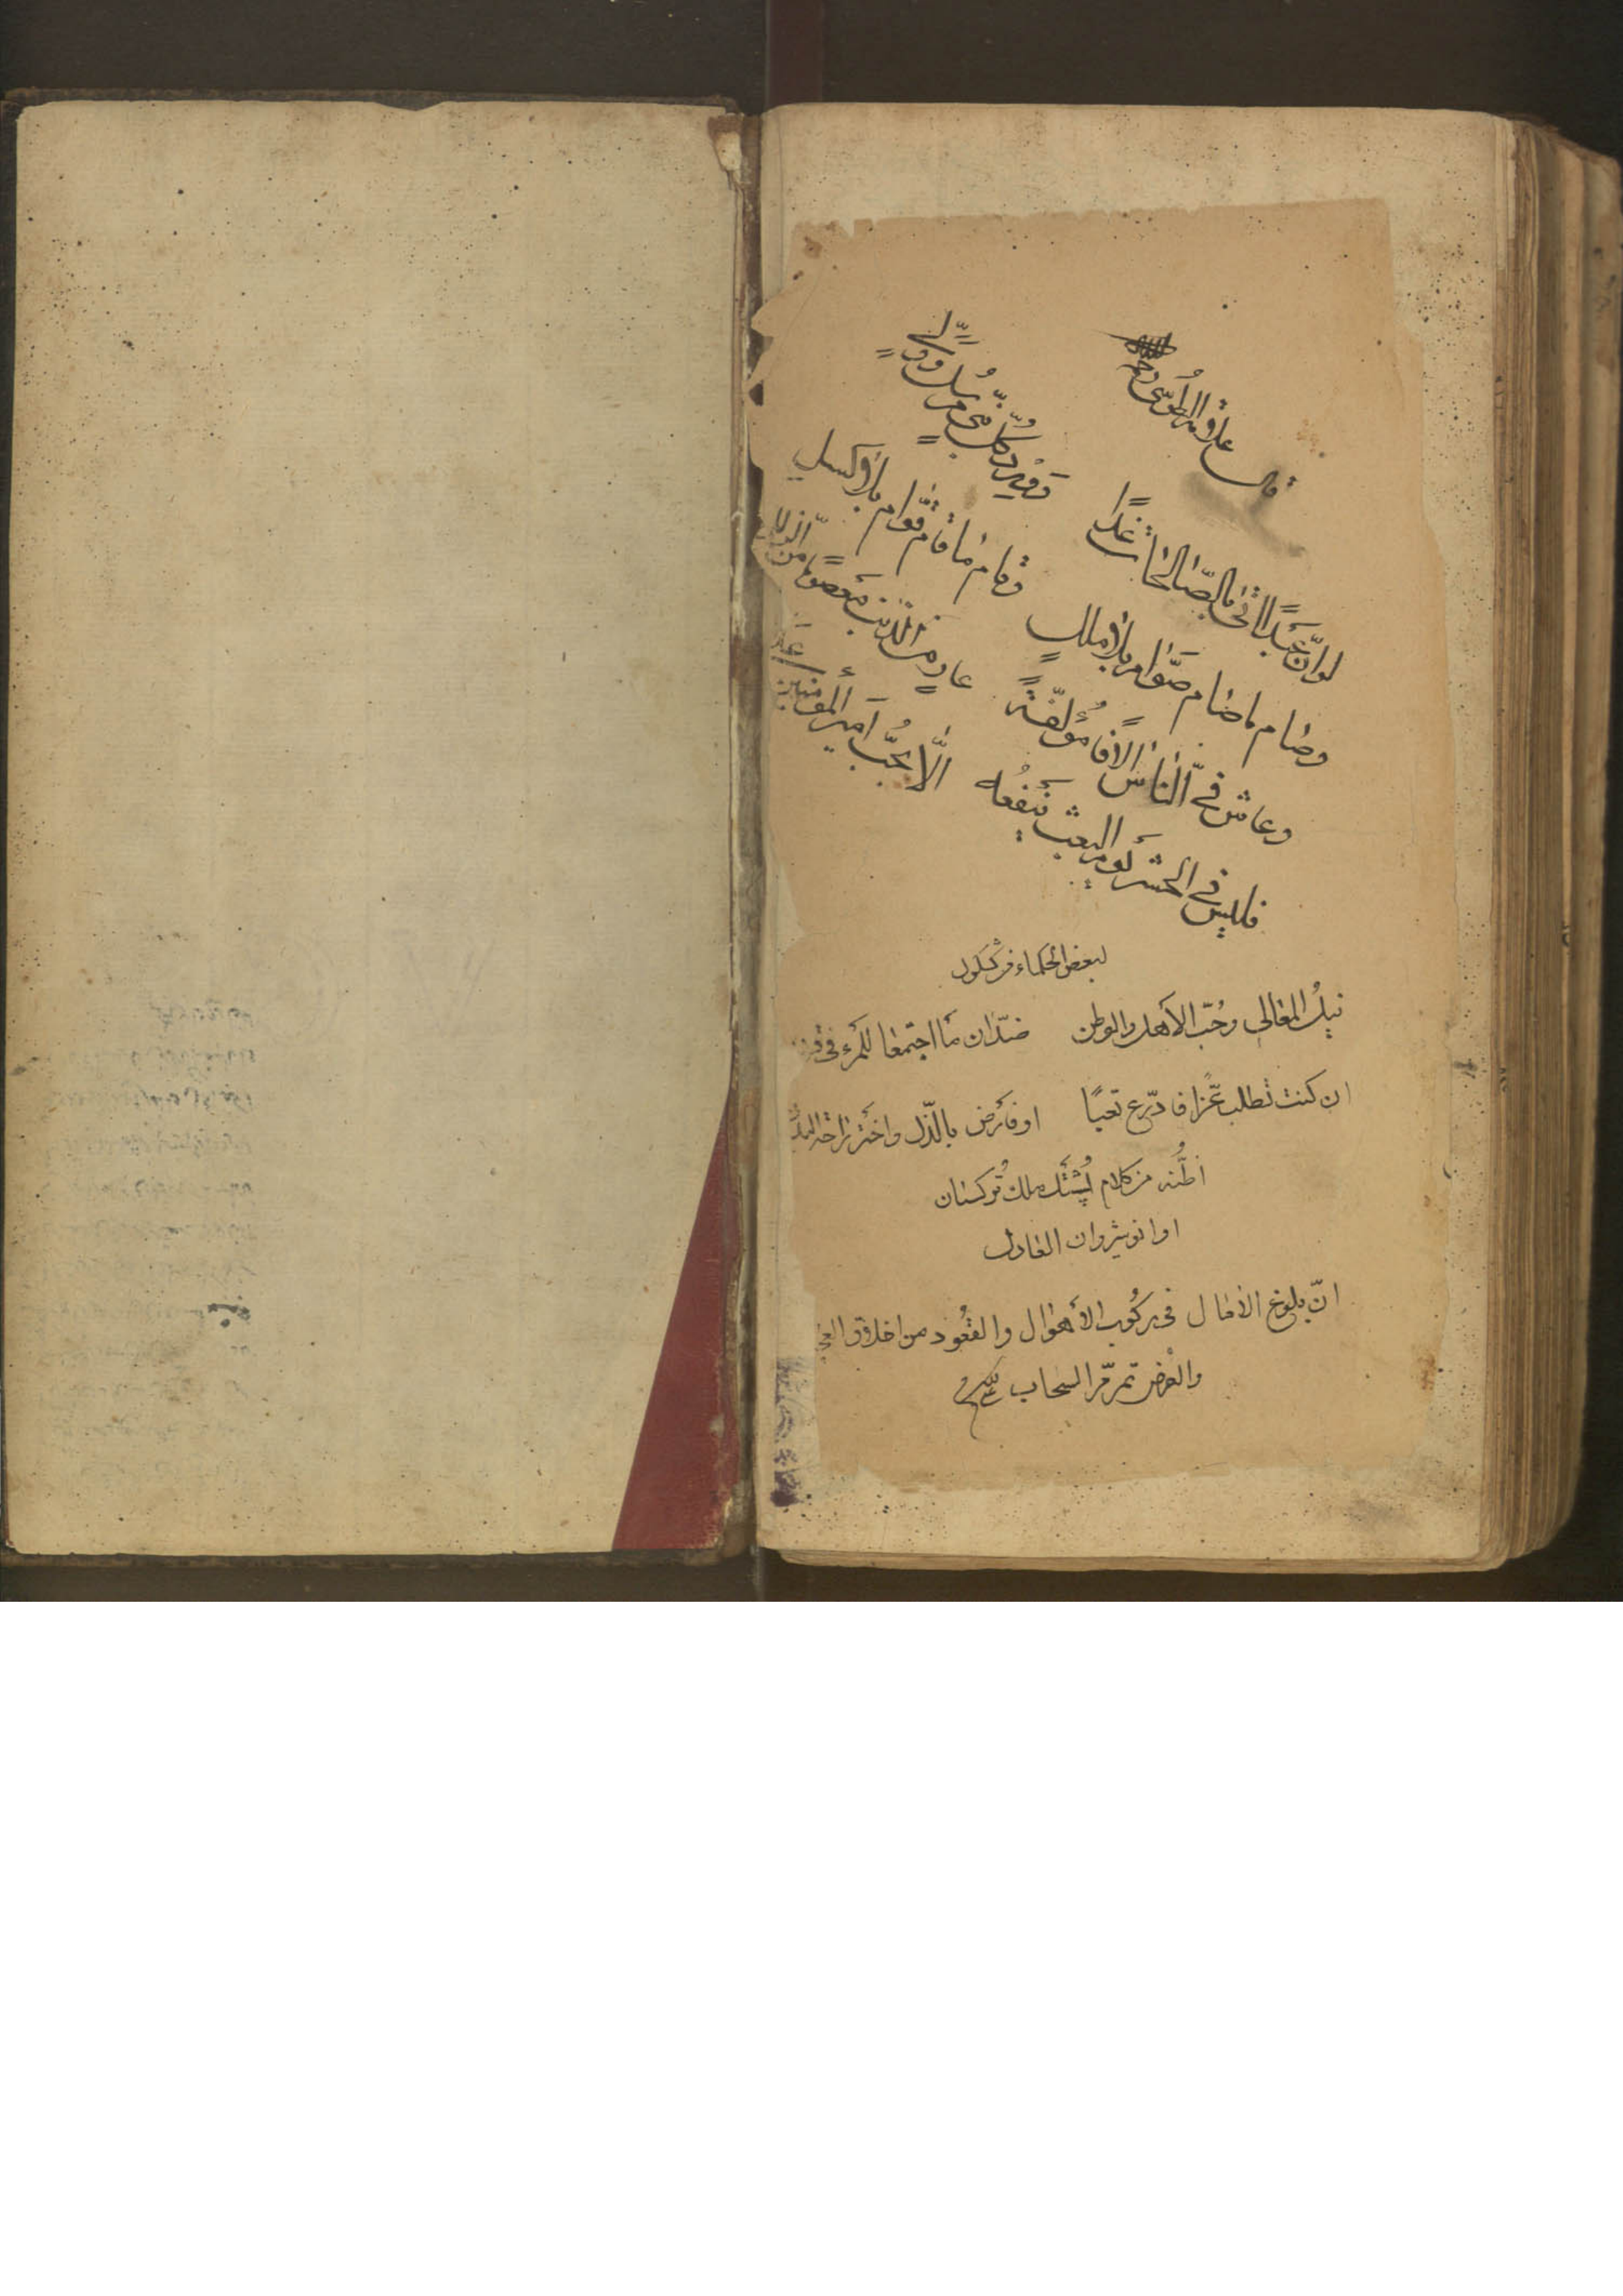 قال علامه الطوسى ره
لو انّ عبدًا اتى بالصّالحات غدًا ووُدّ كلّ نبيّ مرسل وولىّ
وصام ما صام صوّام بلا ملل وقام ما قام قوّام بلا كسل
وعاش فى النّاس الافًا مؤلّفةً عار من الذنب معصومًا من الزلل
فليس فى الحشر يوم البعث ينفعه الّا بحبّ امير المؤمنين على
لبعض الحكماء
نيل المعالى وحُبّ الأهل والوطن ضدّان ما اجتمعا للمرء فى
ان كنت تطلب عّزا فادّرع تعبًا او فأرض بالذّل واختر راحة البدن
اظنّه من كلام پُشَنْك ملك تُركستان
او انوشيروان العادل
انّ بلوغ الامال فى ركُوب الأهوال والقعُود من اخلاق
والفرص تمرّ مرّ السحاب